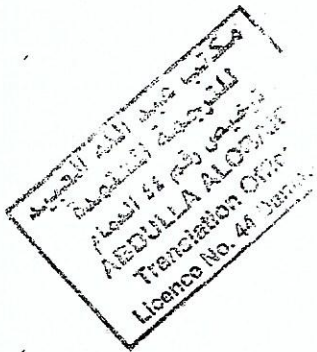 مكاتب عبد الله
للترجمة المعتمدة
ترخيص رقم ٤٤ الدمام
ABDULLA
Translation Office
Licence No. 44